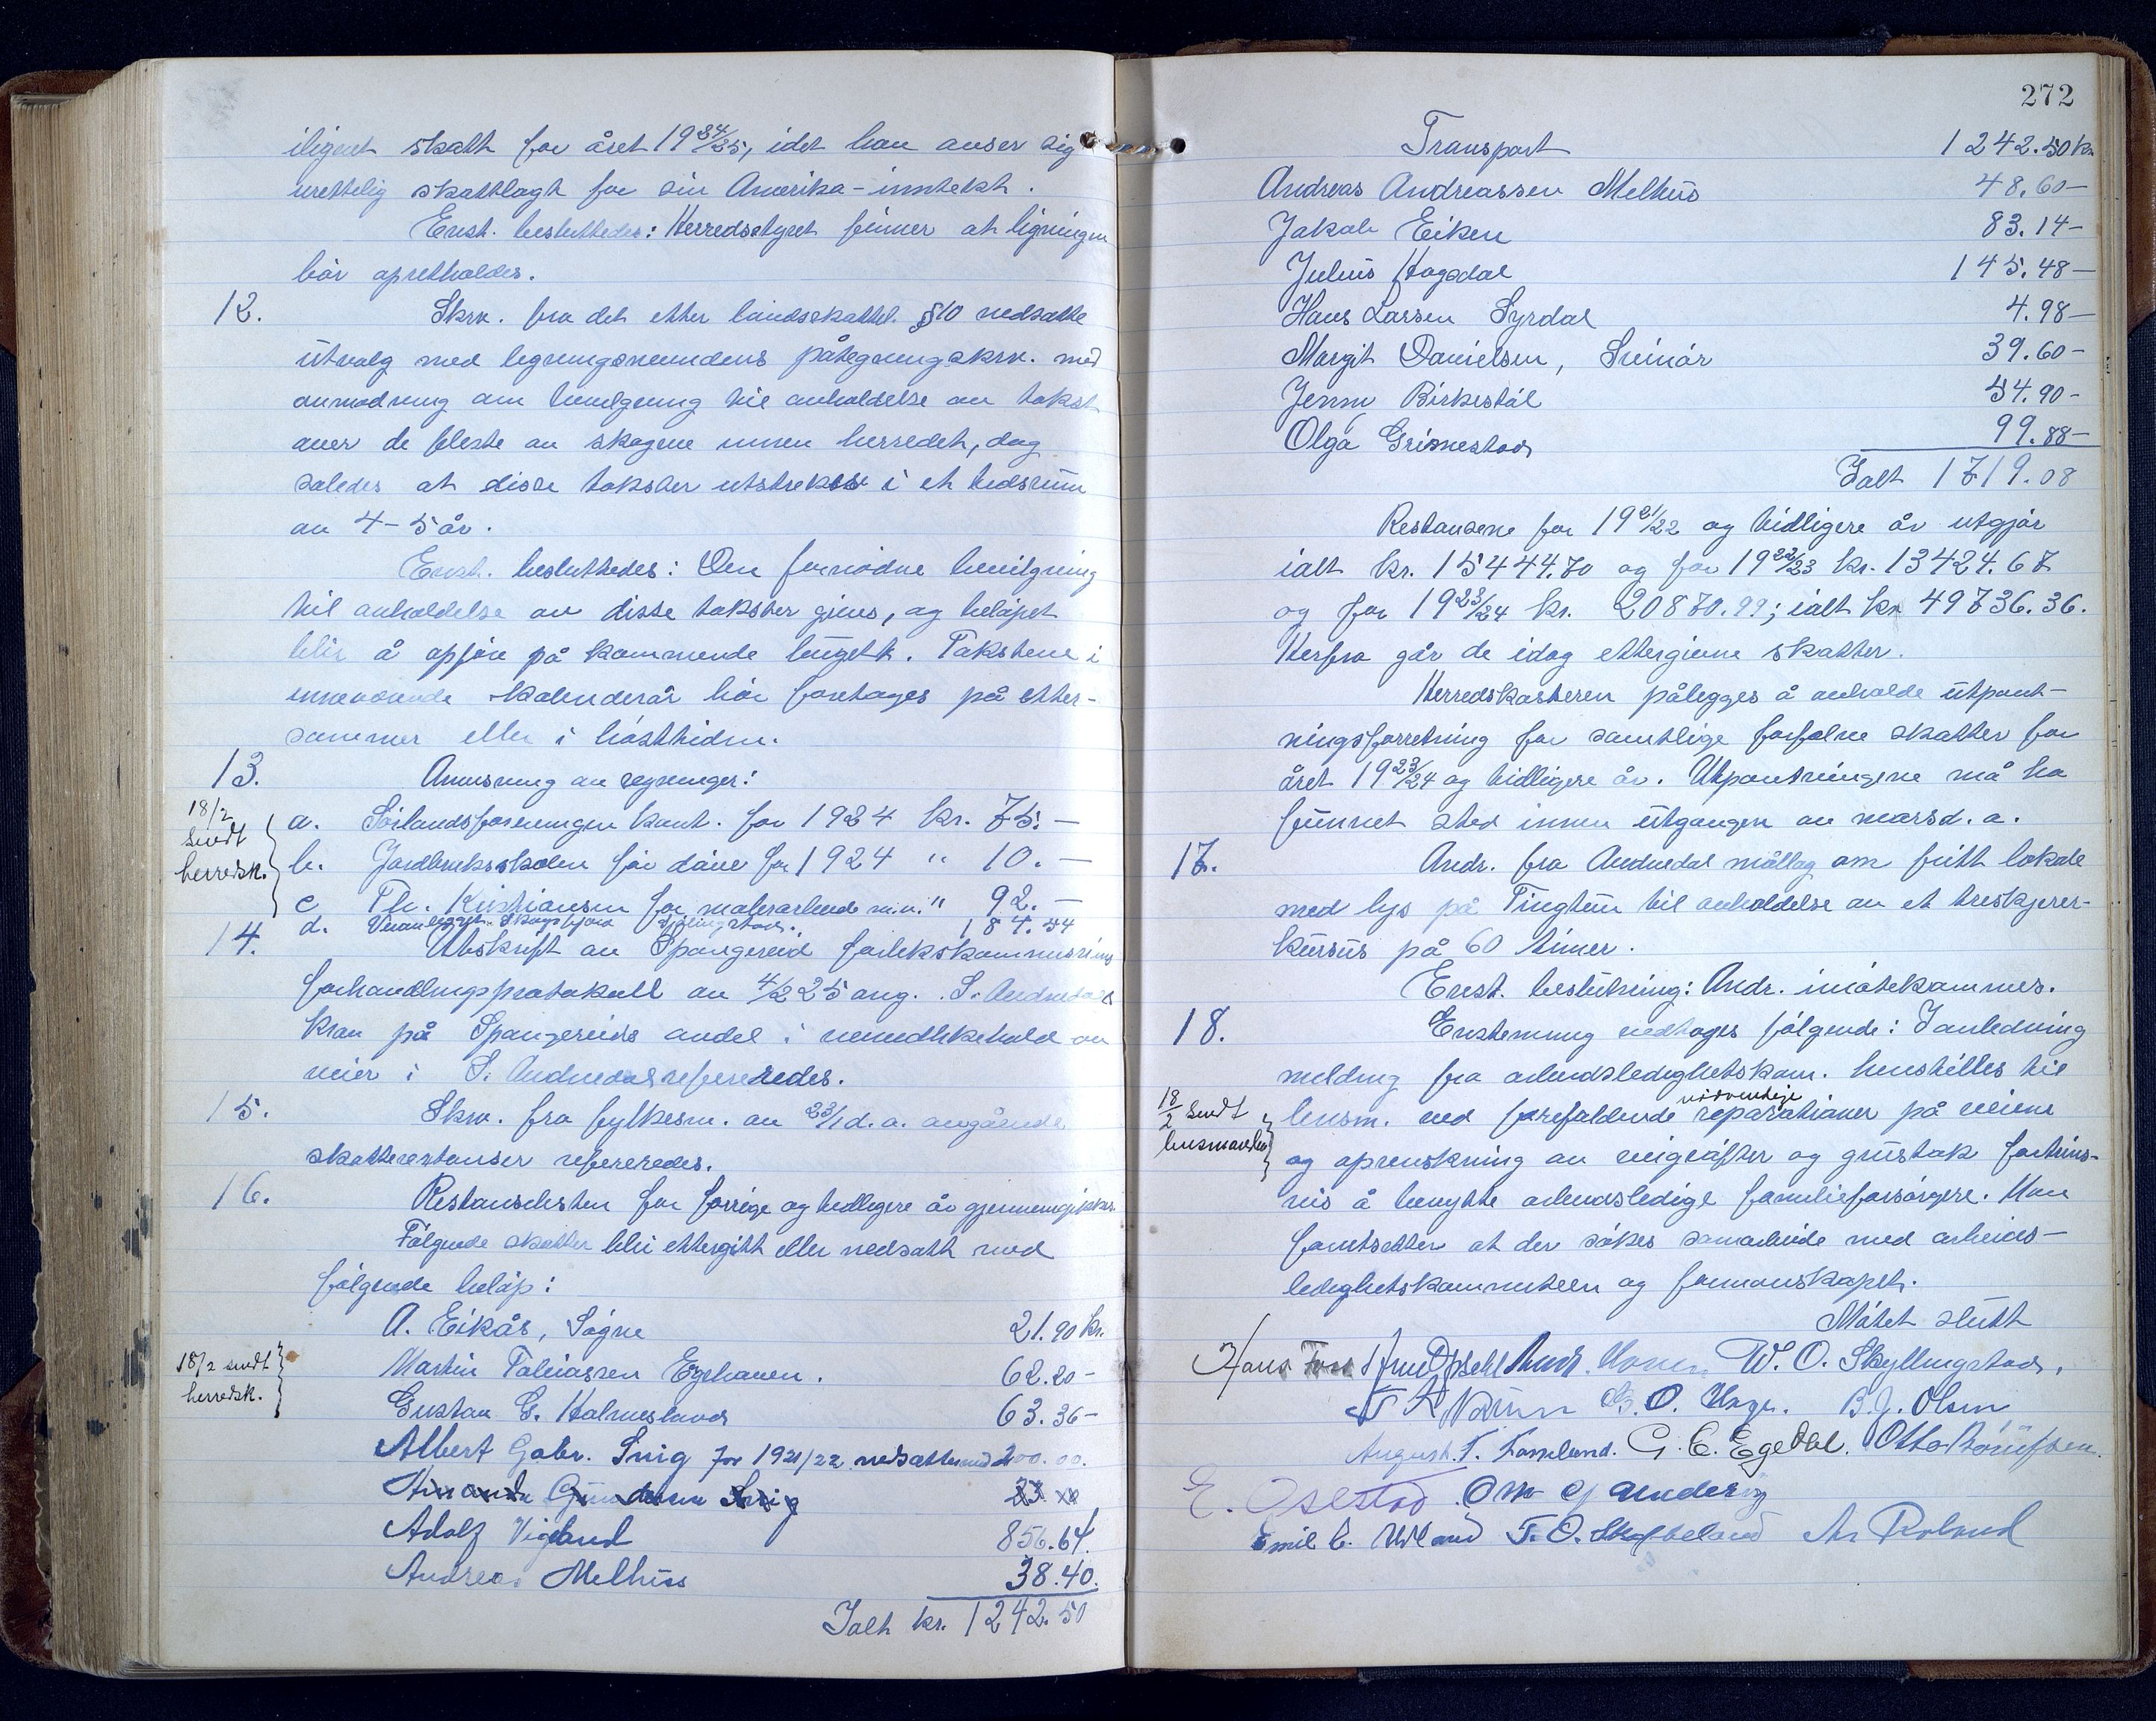 ilignet skatt for året 1924/25, idet han anser sig
urettelig skattlagt for sin Amerika-inntekt.
Enst. besluttedes: Herredsstyret finner at ligningen
bør opretholdes.
12. Skrv. fra det etter landsskattel. §10 nedsatte
utvalg med ligningsnemndens påtegningsskrv. med
anmodning om bevilgning til avholdelse av takst
over de fleste av skogene innen herredet, dog
saledes at disse takster utstrekkes i et tidsrum
av 4-5 år.
Enst. besluttedes: Den fornødne bevilgning
til avholdelse av disse takster gives, og beløpet
blir å opføre på kommende budgett. Takstene i
inneværende kalenderår bør foretages på etter-
sommer eller i høsttiden.
13. Anvisning av regninger:
18/2 sendt herredsk.
a. Sørlandsforeningen kont. for 1924 kr. 75.-
b. Jordbruksskolen for døve for 1924 " 10.-
c Th. Kristiansen for malerarbeide m.v. " 92.-
d. 184.54
14. Utskrift av Spangereid forlikskommisjons
forhandlingsprotokoll av 4/2 25 ang. S. Audnedals
krav på Spangereids andel i vemdlikehold av
veier i S. Audnedal refereredes.
15. Skrv. fra fylkesm. av 23/1 d.a. angående
skatterestanser refereredes.
16. Restanselisten for forrige og tidligere år gjennemgikkes.
Følgende skatter blir ettergitt eller nedsatt med
følgende beløp:
A. Eikås, Søgne 21.90 kr.
18/2 sendt herredsk.
Martin Tobiassen Egehaven. 62.20-
Gustav G. Holmesland 63.36-
Albert Gabr. Snig for 1921/22 nedsattes med 200.00.
Adolf Vigeland 856.64.
Andreas Melhus 38.40.
Ialt kr. 1242.50
272
Transport 1242.50 kr
Andreas Andreassen Melhus 48.60-
Jakob Eiken 83.14-
Julius Hogsdal 145.48-
Hans Larsen Syrdal 4.98-
Margit Danielsen, Svinør 39.60-
Jenny Birkestøl 54.90-
Olga Grimestad 99.88-
Ialt 1719.08
Restansene for 1921/22 og tidligere år utgjør
ialt kr. 15444.70 og for 1922/23 kr. 13424.67
og for 1923/24 kr. 20870.99; ialt kr 49736.36.
Herfra går de idag ettergivne skatter.
Herredskasseren pålegges å avholde utpant-
ningsforretning for samtlige forfalne skatter for
året 1923/24 og tidligere år. Utpantningene må ha
funnet sted innen utgangen av mars d.a.
17. Andr. fra Audnedal mållag om fritt lokale
med lys på Tingtun til avholdelse av et treskjærer-
kursus på 60 timer.
Enst. beslutning: Andr. imøtekommes.
18. Enstemmig vedtoges følgende: I anledning
melding fra arbeidsledighetskom. henstilles til
18/2 sendt lensmannen
lensm. ved forefaldende nødvendige reparationer på veiene
og oprenskning av veigrøfter og grustak fortrins-
vis å benytte arbeidsledige familieforsørgere. Man
forutsetter at der søkes samarbeide med arbeids-
ledighetskommiteen og formannskapet.
Møtet slutt
Hans W. O. Skyllingstad,
B. J. Olsen
August T. G. E. Egedal. Otto
E. Osestad
Emil T. O.